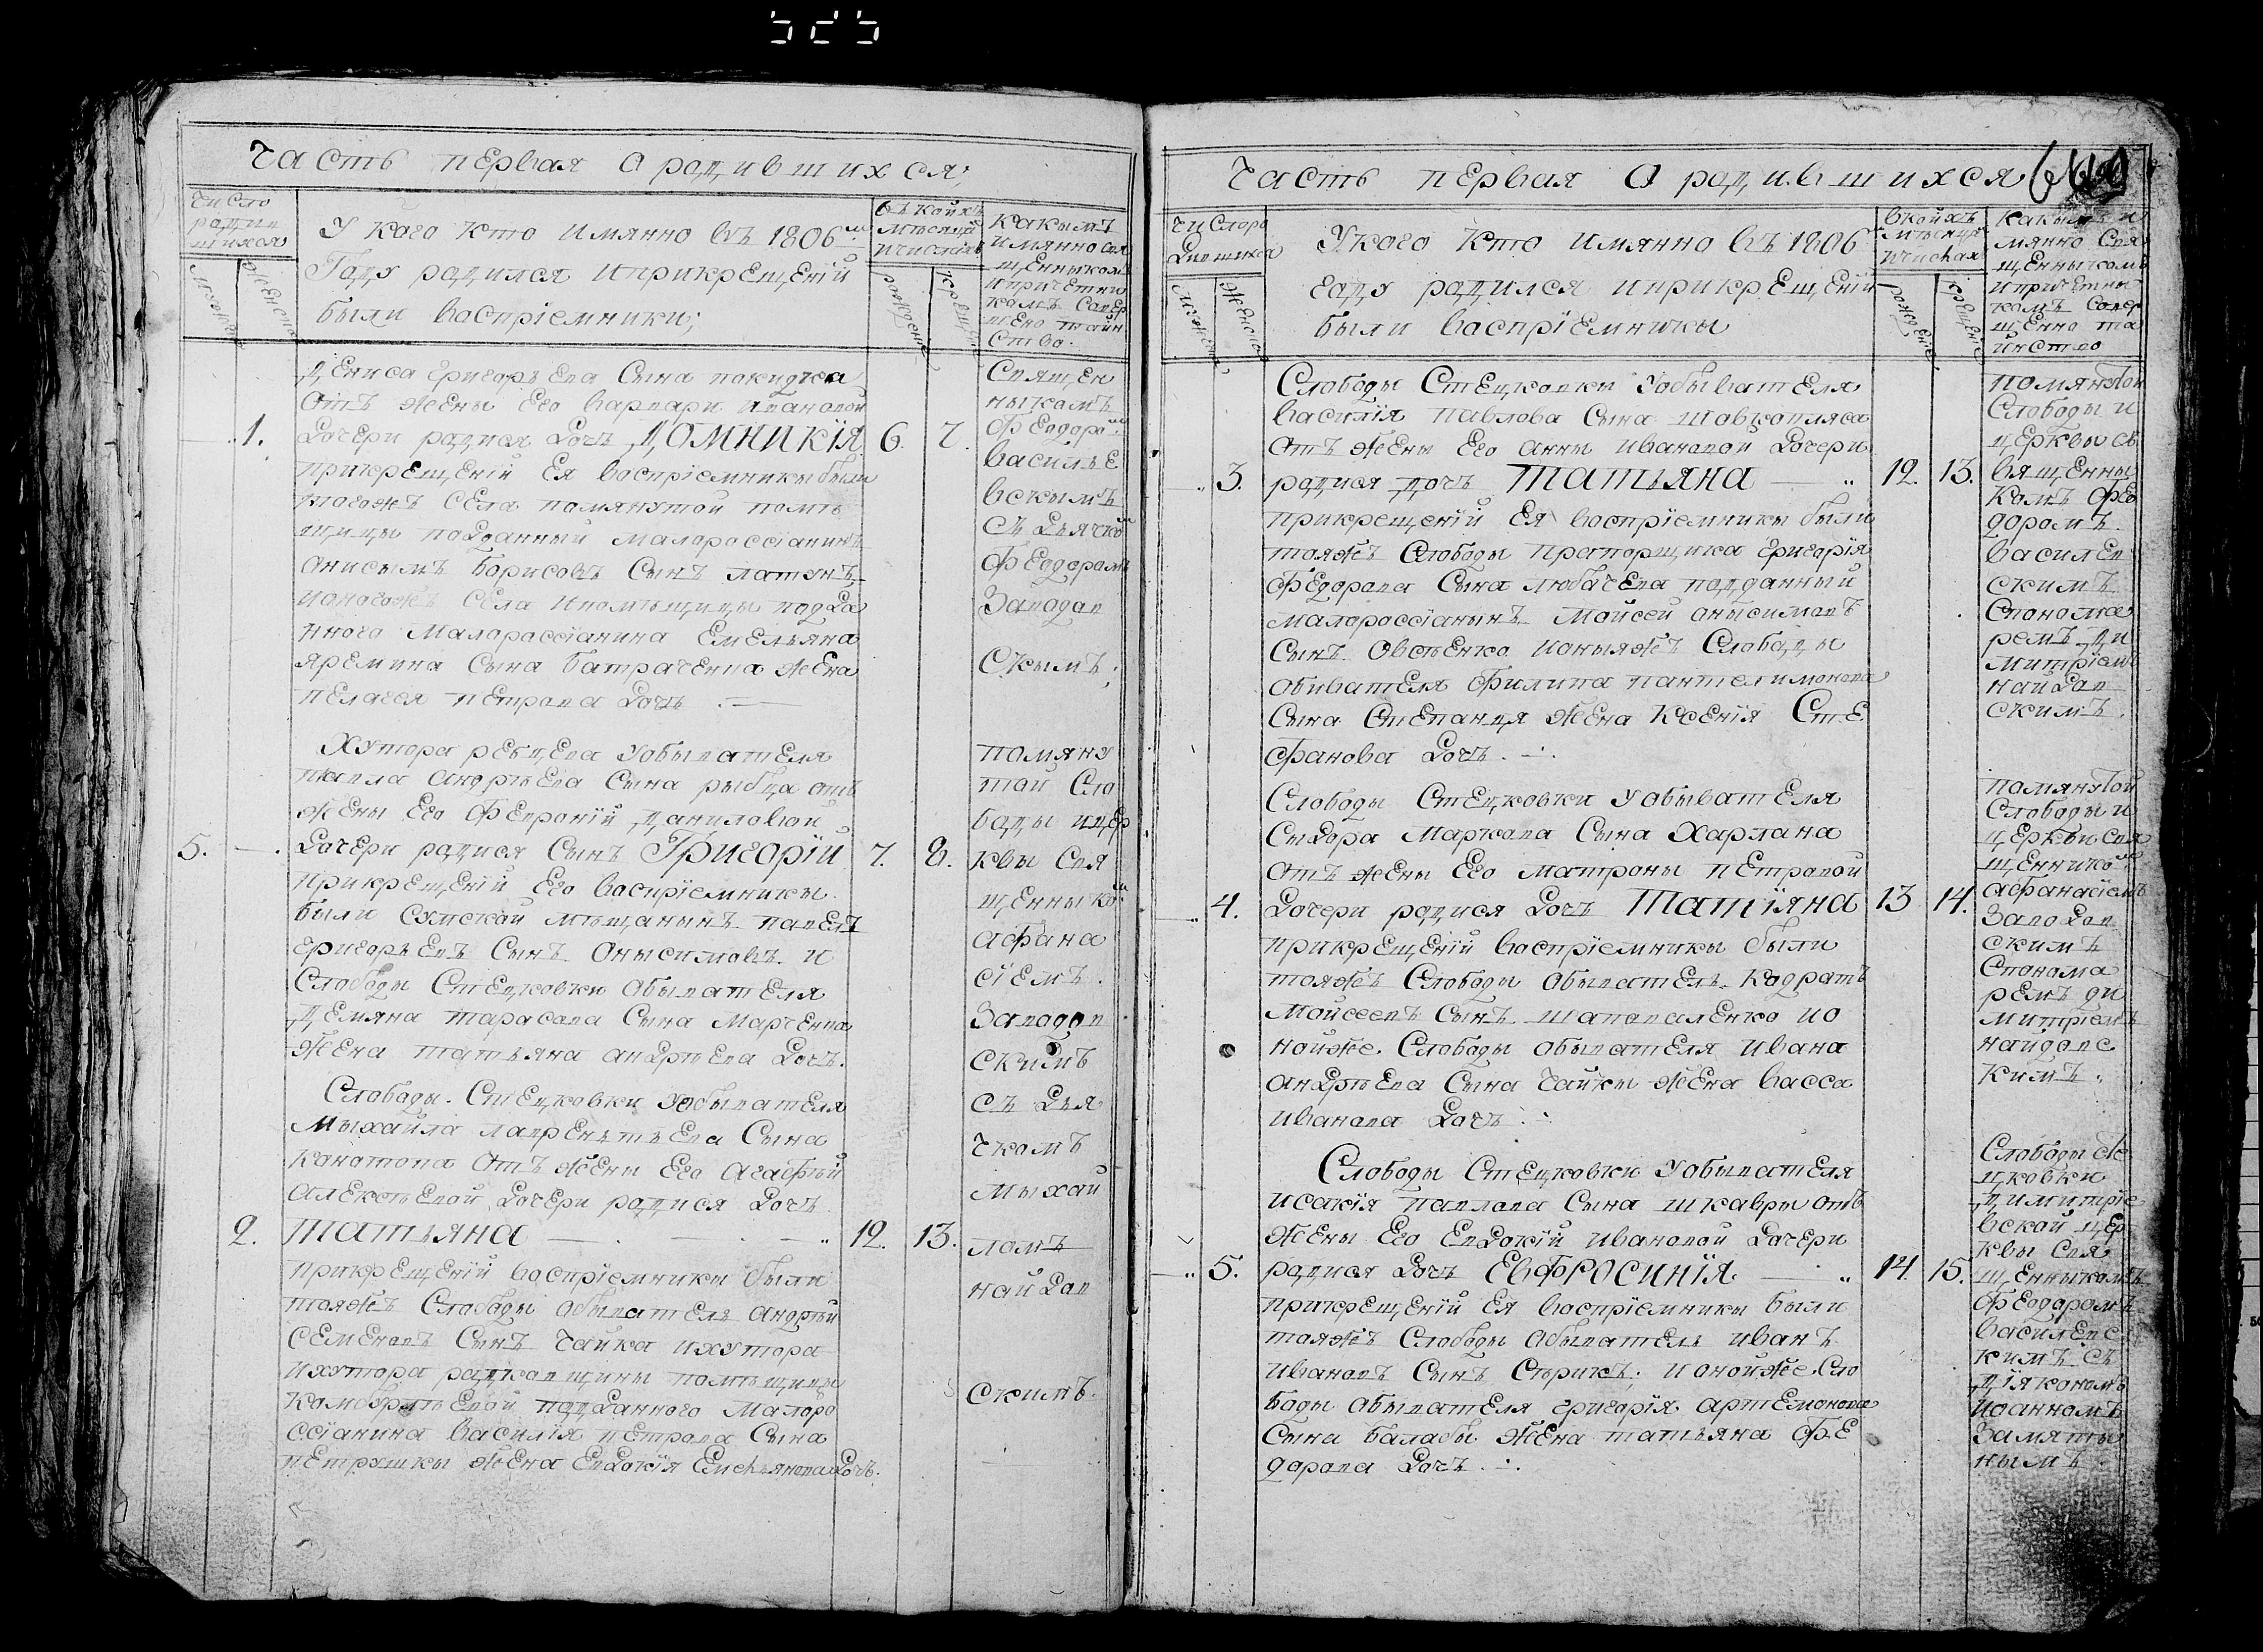 525
Часть первая о родившихся;
Число
родив
шихся
мужеска
женска
У кого кто имянно въ 1806м
Году родился и прикрещеній
были воспріемники;
въ коихъ
мѣсяцѣ
и числахъ
рожденіе
крещеніе
какымъ
имянно свя
щенныком
и причетни
комъ совер
шено таин
ство.
Дениса Григорьева Сына покидчка
отъ жены Его варвари ивановой
1.
Дочери родися Дочъ ДОМНИКІЯ
6.
7.
прикрещеній Ея воспріемникы были
тогожъ Села помянутой помѣ
щицыподданный малороссіанинъ
Анисымъ Борисовъ Сынъ латунъ
ионогожъ Села ипомѣщицы подда
нного Малороссіанина Емельяна
яремина Сына батраченка жена
пелагея петрова Дочъ .—
Священ
ныкомъ
Феодоромъ
василье
вскымъ
съ дьячко
Федоромъ
Заводов
скымъ.
Хутора ребцева Уобывателя
павла андрѣева Сына рыбца отъ
жены Его Февроніи Даниловой
5.
—.
Дочери родися Сынъ Григорій
7.
8.
прикрещеній Его воспріемникы
были Сумской мѣщанынъ павелъ
григорьевъ Сынъ Онысимовъ и
Слободы Стецковки обывателя
Демяна тарасова Сына Марченка
жена татьяна андрѣева Дочъ.
помяну
той Сло
боды ицер
квы Свя
щенныком
афана
сіемъ.
Заводов
скимъ
Слободы Стецковки Уобывателя
Мыхайла лаврентъева Сына
конотопа Отъ жены Его Агафѣи
алексѣевой Дочери родися Дочъ
2.
Татьяна — . — . — „
12.
13.
прикрещеній воспріемникы были
тояжъ Слободы обыватель андрѣй
семеновъ Сынъ чайка ихутора
ихутора радковщины помѣщицы
Комбурлѣевой подданного малоро
ссіанина василія петрова Сына
петрушкы жена Евдокія Емельянова Дочъ.
съ дья
чкомъ
мыхай
ломъ
найдов
скимъ.
Часть первая О родившихся
Числоро
дившихся
мужеска
женска
Укого кто имянно въ 1806
году родился иприкрещеній
были воспріемникы
вкоихъ
мѣсяцѣ
ичислах
рожденіе
крещеніе
какымъ и
мянно Свя
щенныкомъ
ипричетны
комъ совер
шенно та
инство
Слободы Стецковки Уобывателя
василія павлова Сына шовкопляса
отъ жены Его Анны ивановой Дочери
3.
родися дочъ Татьяна — „
12.
13.
прикрещеній Ея воспріемникы были
тояжъ Слободы праторщика григорія
Федорова Сына любачева подданный
малороссіанынъ мойсей онысимовъ
Сынъ Овсѣенко ионыяжъ Слободы
обивателя Филипа пантелимонова
Сына Степанця жена Ксенія Сте
фанова Дочъ . —:
помянутой
Слободы и
церквы св
вященны
комъ Фео
доромъ
василев
скимъ
Спонома
ремъ Ди
митріемъ
найдов
скимъ.
Слободы Стецковки Уобывателя
Сыдора Маркова Сына Харлана
отъ жены Его матроны петровой
4.
Дочери родися Дочъ Татіяна
13
14.
прикрещеній воспріемникы были
тояжъ Слободы обыватель кодратъ
мойсеевъ Сынъ шаповаленко ио
нойже Слободы обывателя Ивана
андрѣева Сына чайкы жена васса
иванова Дочъ :-
помянутой
Слободы и
церквы свя
щенником
афанасіемъ
Заводов
скимъ
Спонома
ремъ ди
митріемъ
найдовс
кимъ.
Слободы Стецковки Уобывателя
исакія павлова Сына шкавры отъ
жены Его Евдокіи ивановой Дочери
5.
родися Дочъ ЕВФРОСИНІЯ. — „
14.
15.
прикрещеній Ея воспріемникы были
тояжъ Слободы обыватель иванъ
ивановъ Сынъ Стрикъ; и онойже Сло
боды обывателя григорія артемонова
Сына балабы жена татьяна Фе
дорова Дочъ . —:
Слободы Сте
цковки
Димитріе
вской цер
квы Свя
щенныкомъ
Феодоромъ
василевс
кимъ съ
Діякономъ
иоанномъ
Замяты
нымъ